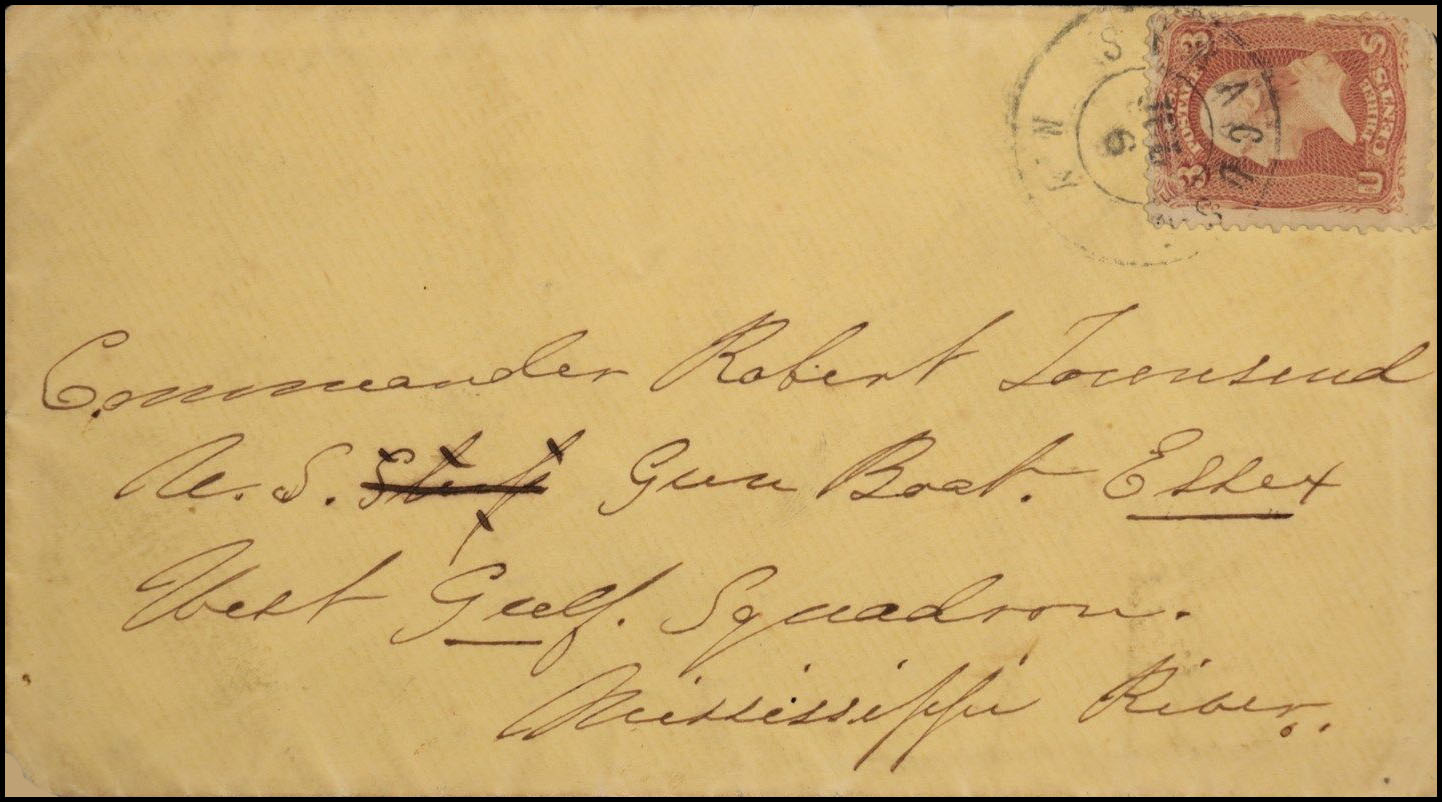 SYRACUS
N.Y.
6
3 3
U S
POSTAGE
THREE
CENTS
Commander Robert Townsend
U. S. Ship Gun Boat. Essex
West Gulf. Squadron.
Mississippi River.